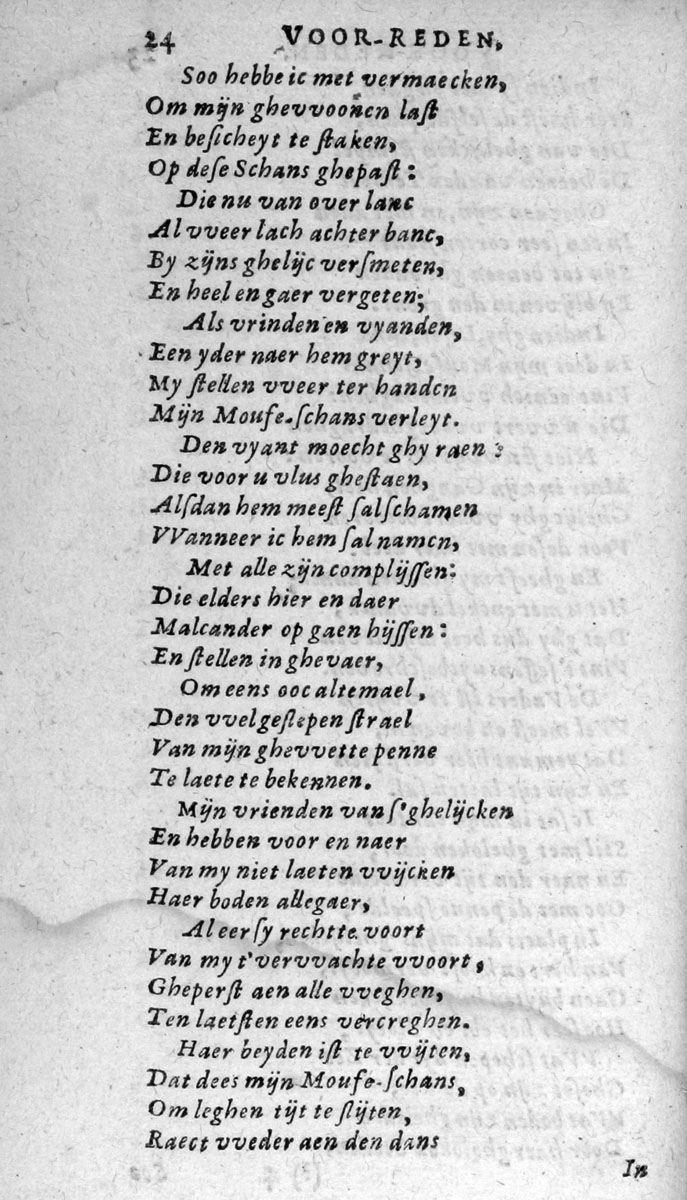 24 VOOR-REDEN,
Soo hebbe ic met vermaecken,
Om mijn ghevvoonen laſt
En beſicheyt te ſtaken,
Op deſe Schans ghepaſt:
Die nu van over lanc
Al vveer lach achter banc,
By zijns ghelijc verſmeten,
En heel en gaer vergeten;
Als vrinden en vyanden,
Een yder naer hem greyt,
My ſtellen vveer ter handen
Mijn Mouſe-ſchans verleyt.
Den vyant moecht ghy raen:
Die voor u vlus gheſtaen,
Alſdan hem meeſt ſal ſchamen
VVanneer ic hem ſal namen,
Met alle zijn complijſſen:
Die elders hier en daer
Malcander op gaen hijſſen:
En ſtellen in ghevaer,
Om eens ooc altemael,
Den vvelgeſlepen ſtrael
Van mijn ghevvette penne
Te laete te bekennen.
Mijn vrienden van ſ'ghelijcken
En hebben voor en naer
Van my niet laeten vvijcken
Haer boden allegaer,
Al eer ſy recht te voort
Van my t'vervvachte vvoort,
Gheperſt aen alle vveghen,
Ten laetſten eens vercreghen.
Haer beyden iſt te vvijten,
Dat dees mijn Mouſe-ſchans,
Om leghen tijt te ſlijten,
Raect vveder aen den dans
In